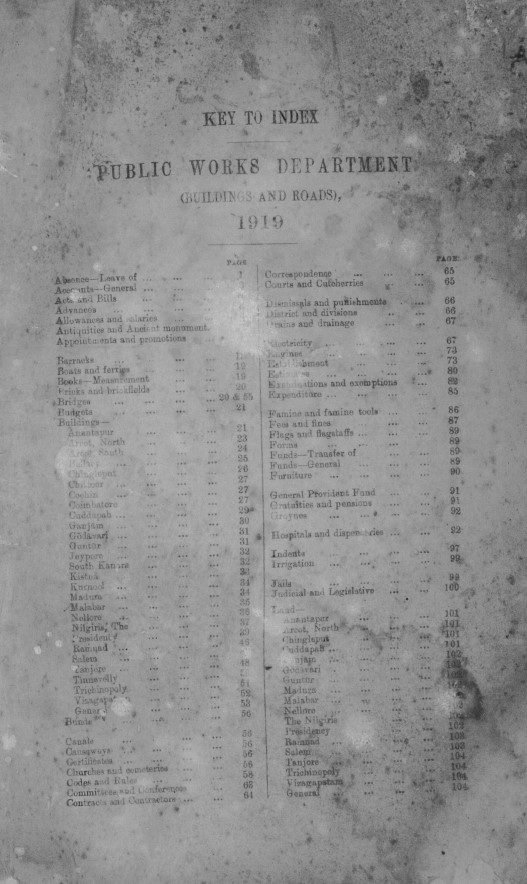 KEY TO INDEX
PUBLIC WORKS DEPARTMENT
(BUILDINGS AND ROADS),
1919
PAGE
Absence—Leave of ... ... ... 1
Accounts—General ... ... ...
Acts and Bills ... ...
Advances ... ... ...
Allowances and salaries ... ...
Antiquities and Ancient monument.
Appointments and promotions ...
Barracks ... ...
Boats and ferries ... ... 12
Books—Measurement ... ... 19
Bricks and brickfields ... ... 20
Bridges ... ... 20 & 55
Budgets ... ... ... 21
Buildings—
Anantapur ... ... 21
Arcot, North ... ... 23
Arcot, South ... ... 24
... ... 25
Chingleput ... ... 26
... ... 27
Cochin ... ... 27
Coimbatore ... ... 27
Cuddapah ... ... 29
Ganjam ... ... ... 30
Gōdāvari ... ... ... 31
Guntūr ... ... ... 31
Jeypore ... ... 32
South Kanara ... ... 32
Kistna ... ... 33
Kurnool ... ... ... 34
Madura ... ... ... 34
Malabar ... ... 35
Nellore ... ...
Nilgiris, The ... ... 37
Presidency ... ... 39
Ramnad ... ... 46
Salem ... ...
Tanjore ... ... 48
Tinnevelly ... ...
Trichinopoly ... ... 51
Vizagapatam ... ... 52
General ... ... 53
Bunds ... ... 56
Canals ... ... 56
Causeways ... ... 56
Certificates ... ... 56
Churches and cemeteries ... ... 56
Codes and Rules ... ... 58
Committees and Conferences ... 63
Contracts and Contractors ... ... 64
PAGE
Correspondence ... ... ... 65
Courts and Cutcherries ... ... 65
Dismissals and punishments ... ... 66
District and divisions ... ... 66
Drains and drainage ... ... 67
Electricity ... ... ... 67
Engines ... ... ... 73
Establishment ... ... ... 73
Estimates ... ... ... 80
Examinations and exemptions ... 82
Expenditure ... ... ... 85
Famine and famine tools ... ... 86
Fees and fines ... ... ... 87
Flags and flagstaffs ... ... ... 89
Forms ... ... ... 89
Funds—Transfer of ... ... 89
Funds—General ... ... ... 89
Furniture ... ... ... 90
General Provident Fund ... ... 91
Gratuities and pensions ... ... 91
Groynes ... ... ... 92
Hospitals and dispensaries ... ... 92
Indents ... ... ... 97
Irrigation ... ... ... 99
Jails ... ... ... 99
Judicial and Legislative ... ... 100
Land—
Anantapur ... ... ... 101
Arcot, North ... ... ... 101
Chingleput ... ... ... 101
Cuddapah ... ... ... 101
Ganjam ... ... ... 102
Gōdāvari ... ... ...
Guntūr ... ... ...
Madura ... ... ...
Malabar ... ... ...
Nellore ... ... ...
The Nilgiris ... ... 102
Presidency ... ... ... 102
Ramnad ... ... ... 103
Salem ... ... ... 103
Tanjore ... ... ... 104
Trichinopoly ... ... ... 104
Vizagapatam ... ... ... 104
General ... ... ... 104